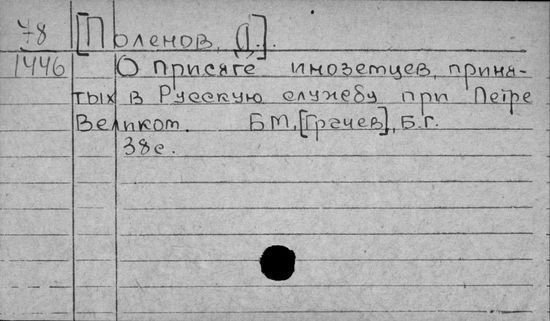 78 [Поленов, Д.].
1446 О присяге иноземцев, приня-
тых в Русскую службу при Петре
Великом. БМ, [Грачев], Б.Г.
38с.